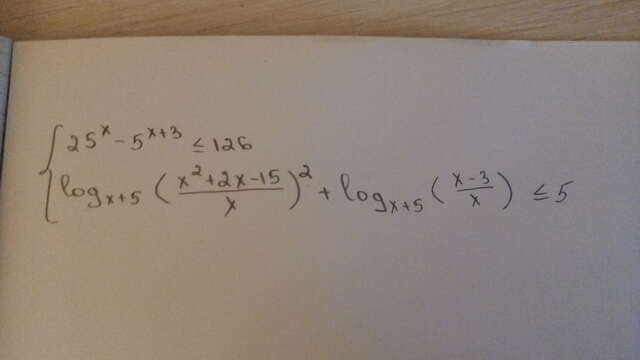 25^x - 5^{x+3} ≤ 126
log_{x+5} ( \frac{x^2+2x-15}{x} )^2 + log_{x+5} ( \frac{x-3}{x} ) ≤ 5